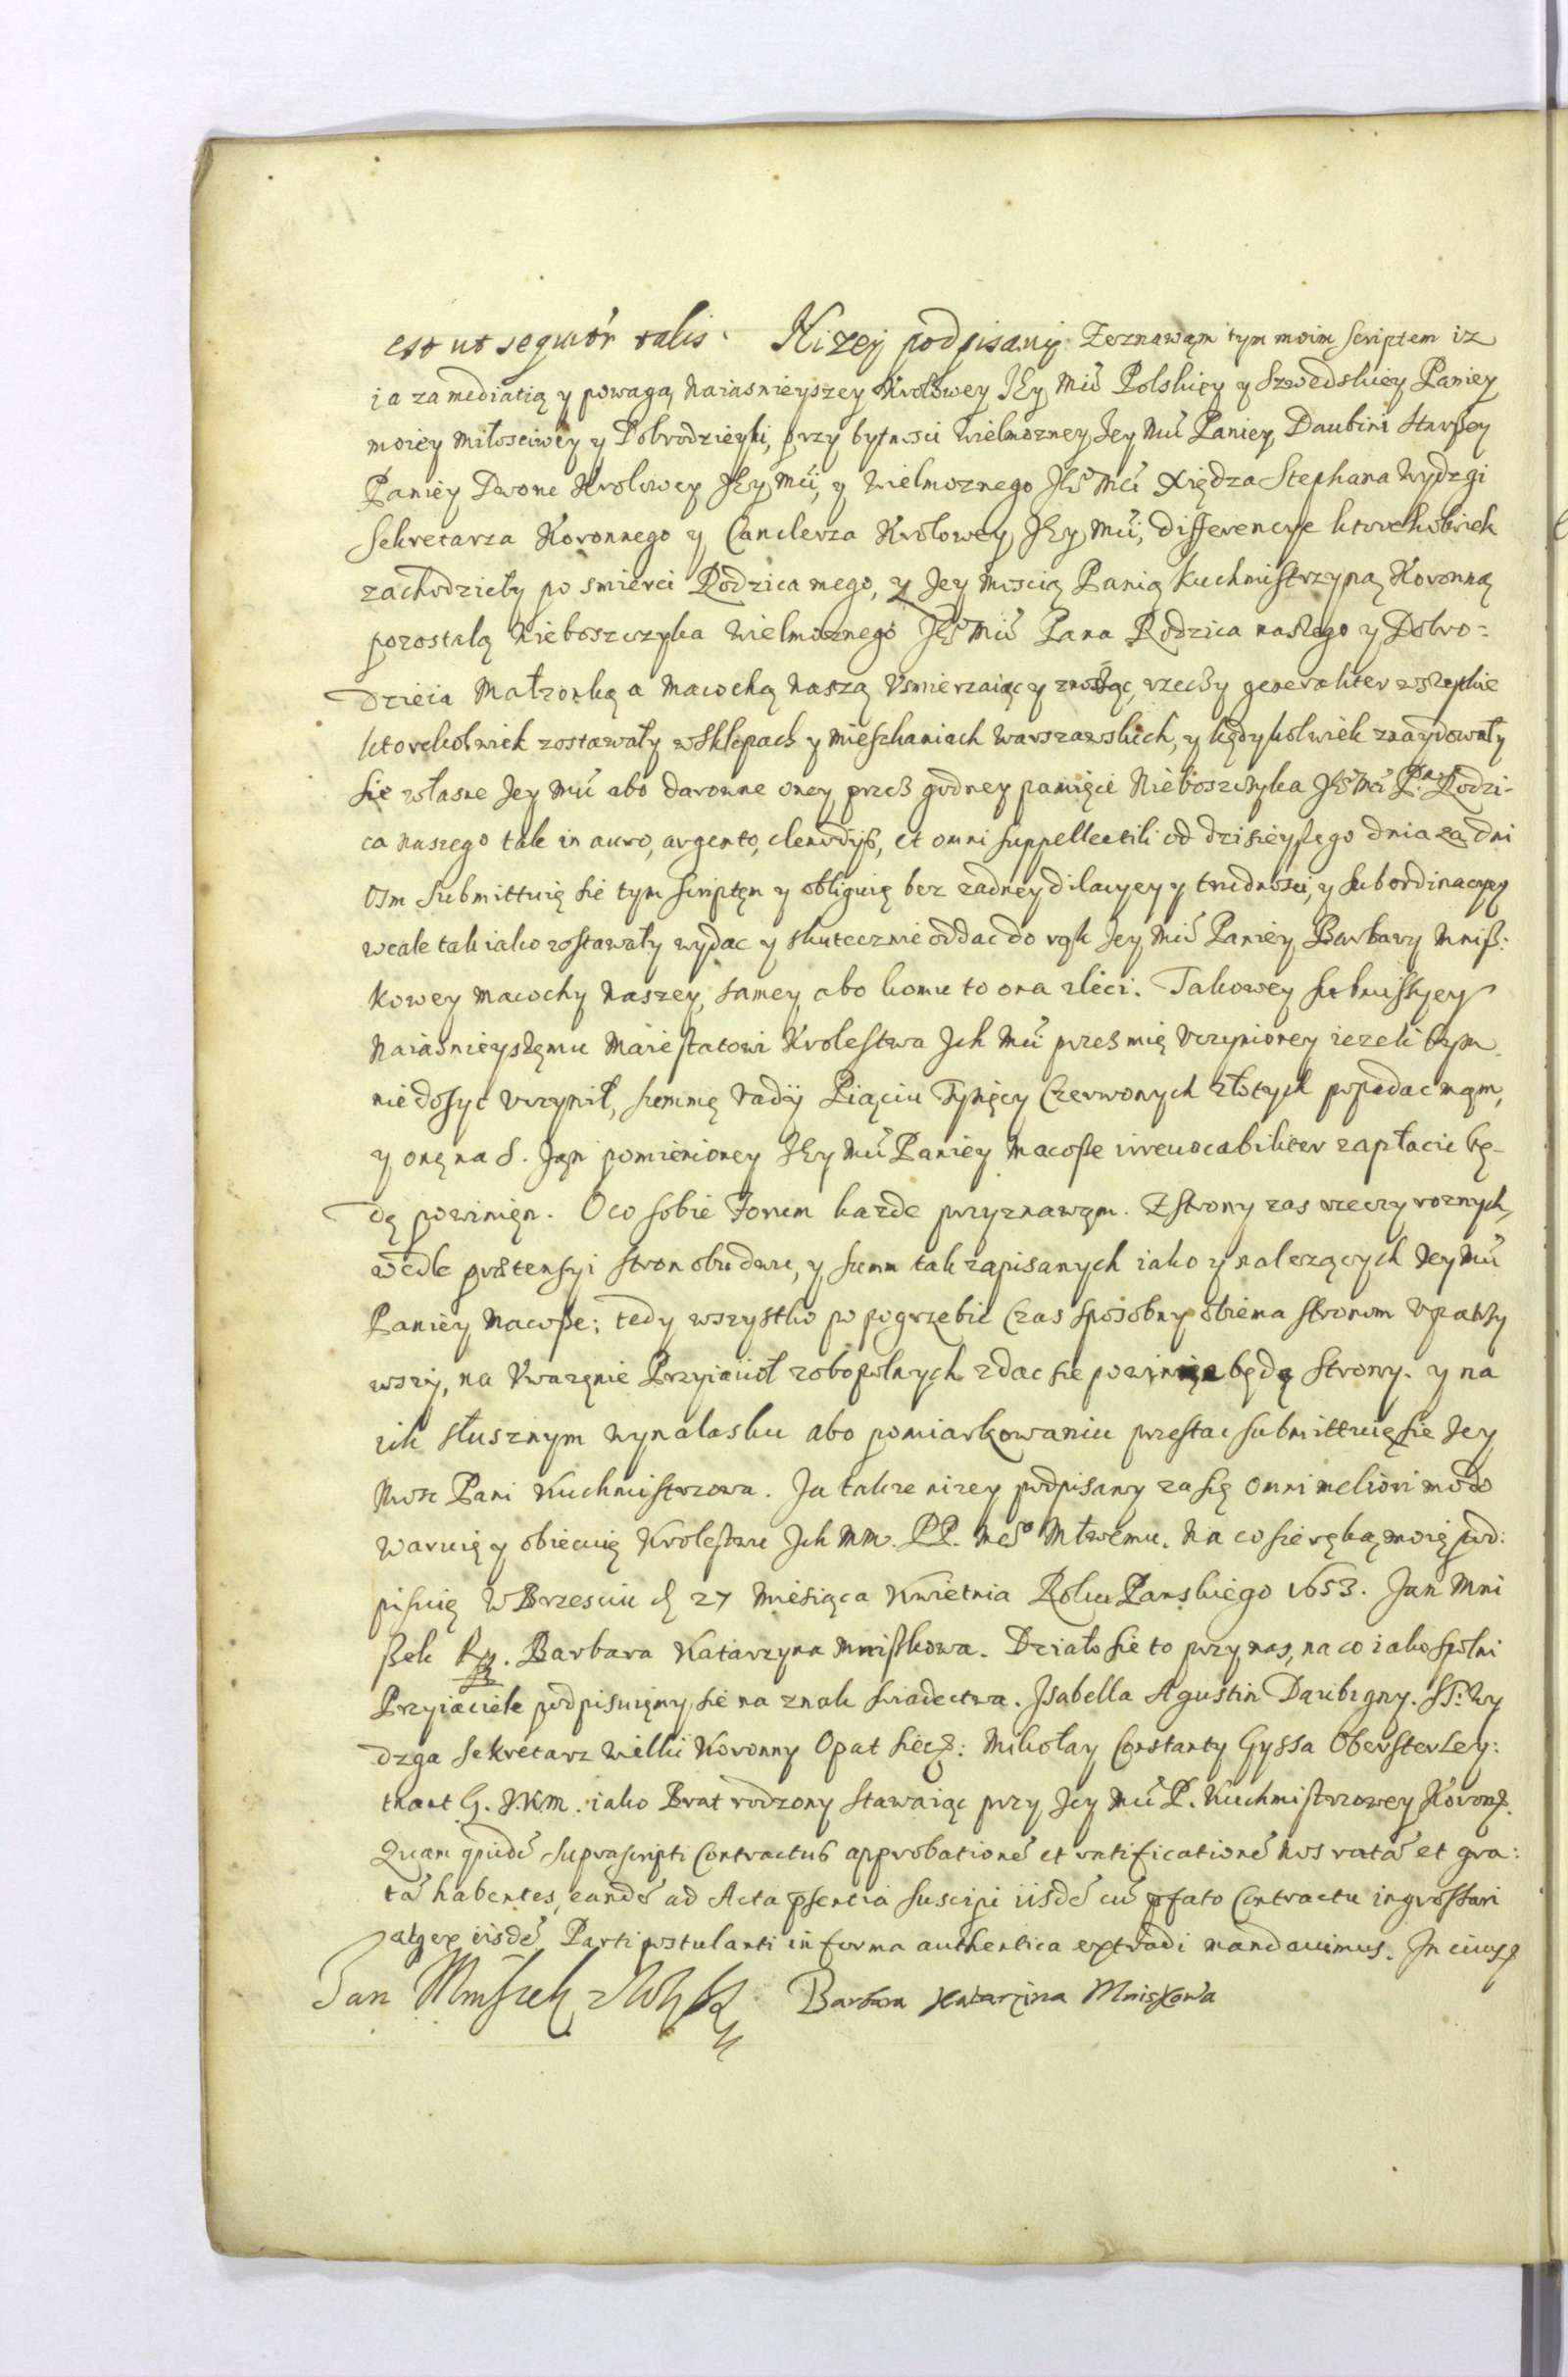 est ut sequitur talis. Nizey podpisany Zeznawąm tym moim scriptem iz
ia za mediatią y powagą Naiasnieyszey Krolowey JEy Mci Polskiey y Szwedskiey Paniey
moiey miłosciwey y Dobrodzieyki, przy bytnosci wielmozney Jey Mci Paniey Daubini Starszey
Paniey Dwone Krolowey JEy Mci, y Wielmoznego JEo Mci Xiędza Stephana Wydzgi
Sekretarza Koronnego y Canclerza Krolowey JEy Mci, differencye ktorekolwiek
zachodzieły po smierci Rodzica mego, z Jey Mością Panią Kuchmistrzyną Koronną
pozostałą Nieboszczyka Wielmoznego JEo Mci Pana Rodzica naszego y Dobro=
dzieia Małzonką a Macochą Naszą Vsmierzaiąc y znosząc, rzeczy generaliter wszeytkie
ktorekolwiek zostawały w Sklepach y Mieszkaniach Warszawskich, y kędykolwiek znaydowały
sie własne Jey Mci abo darowne oney przes godney pamięci Nieboszczyka JEo Mci Pa Rodzi-
ca Naszego tak in auro, argento, clenodijs, et omni suppellectili od dzisieyszego dnia za dni
Osm submittuię sie tym scriptęm y obliguię bez zadney dilacyey y trudnosci, y subordinacyey
wcale tak iako zostawały wydac y skutecznie oddac do rąk Jey Mci Paniey Barbary Mnisz:
kowey Macochy Naszey, samey abo komu to ona zleci. Takowey submissyey
Naiasnieyszęmu Maiestatowi Krolestwa Ich Mci przes mię vczynioney iezelibym
niedosyc vczynił, summę vadij Piąciu Tysięcy Czerwonych złotych popadac mąm,
y onę na S. Jąn pomienioney JEy Mci Paniey Macosze irreuocabiliter zapłacic bę-
dę powinięn. O co sobie Forum kazde przyznawąm. Z strony zas rzeczy roznych,
wedle prætensyi stron obudwu, y summ tak zapisanych iako y nalezących Jey Mci
Paniey Macosze; tedy wszystko po pogrzebie Czas sposobny obiema stronom vpatrzy
wszy, na Vwazęnie Przyiaciół zobopolnych zdac sie powinne będą Strony. y na
ich słusznym wynalasku abo pomiarkowaniu przestac submittuię sie Jey
Mosc Pani Kuchmistrzowa. Ja takze nizey podpisany za się omni meliori modo
waruię y obiecuię Krolestwu Ich MM. PP. Meo Młwemu. Na co sie ręką moią pod:
pisuię W Brzesciu d 27 Miesiąca Kwietnia Roku Panskiego 1653. Jan Mni
szek Rp. Barbara Katarzyna Mniszkowa. Działo sie to przy nas, na co iako spolni
Przyiaciele podpisuięmy sie na znak swiadectwa. Jsabella Agustin Daubigny. St: Wy
dzga Sekretarz Wielki Koronny Opat Siec: Mikołay Constanty Gyssa Obersterley:
tnant G. J.K.M. iako Brat rodzony stawaiąc przy Jey Mci P. Kuchmistrzowey Koron.
Quam quidē suprascripti Contractus approbationē et ratificationē nos ratā et gra:
tā habentes, eandē ad Acta pñsentia suscipi iisdē cū pfato Contractu ingrossari
atq ex iisdē Parti postulanti in forma authentica extradi mandauimus. In cuius
Jan Mniszek Barbara Katarzina Mniskowa